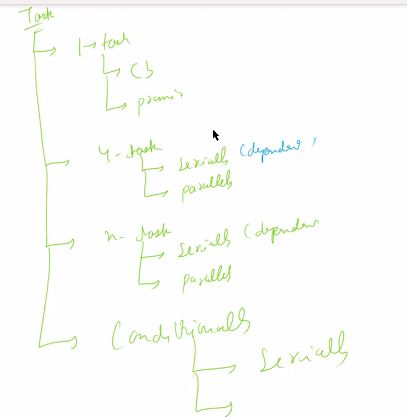 Task
1 → task
Cb
promis
4 - task
serially (dependen
parallel
n - task
serially (dependen
parallel
Conditionally
serially